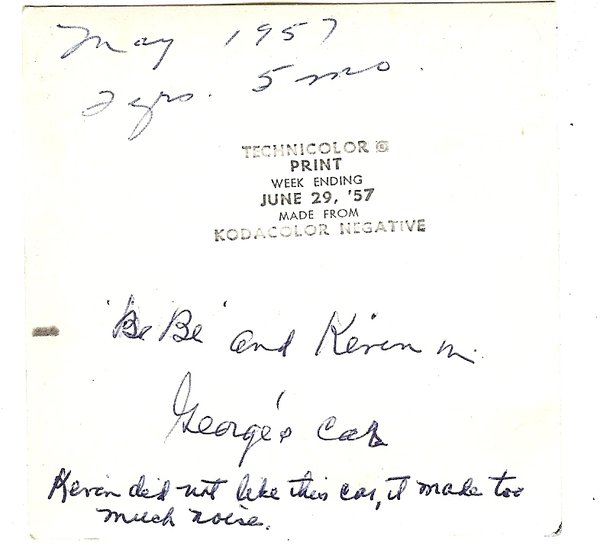 May 1957
2 yrs. 5 mo.
TECHNICOLOR ©
PRINT
WEEK ENDING
JUNE 29, '57
MADE FROM
KODACOLOR NEGATIVE
'Be Be' and Kevin in
George's car
Kevin did not like this car, it made too
much noise.